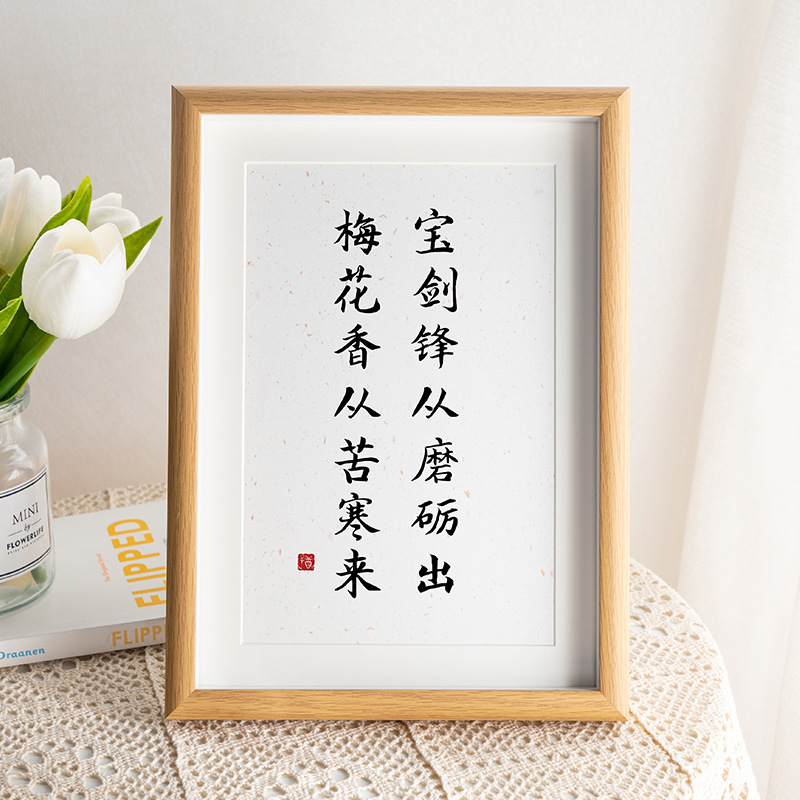 宝剑锋从磨砺出
梅花香从苦寒来
MINI
by
FLOWERLIFE
FLIPPED
FLIPP
Draanen